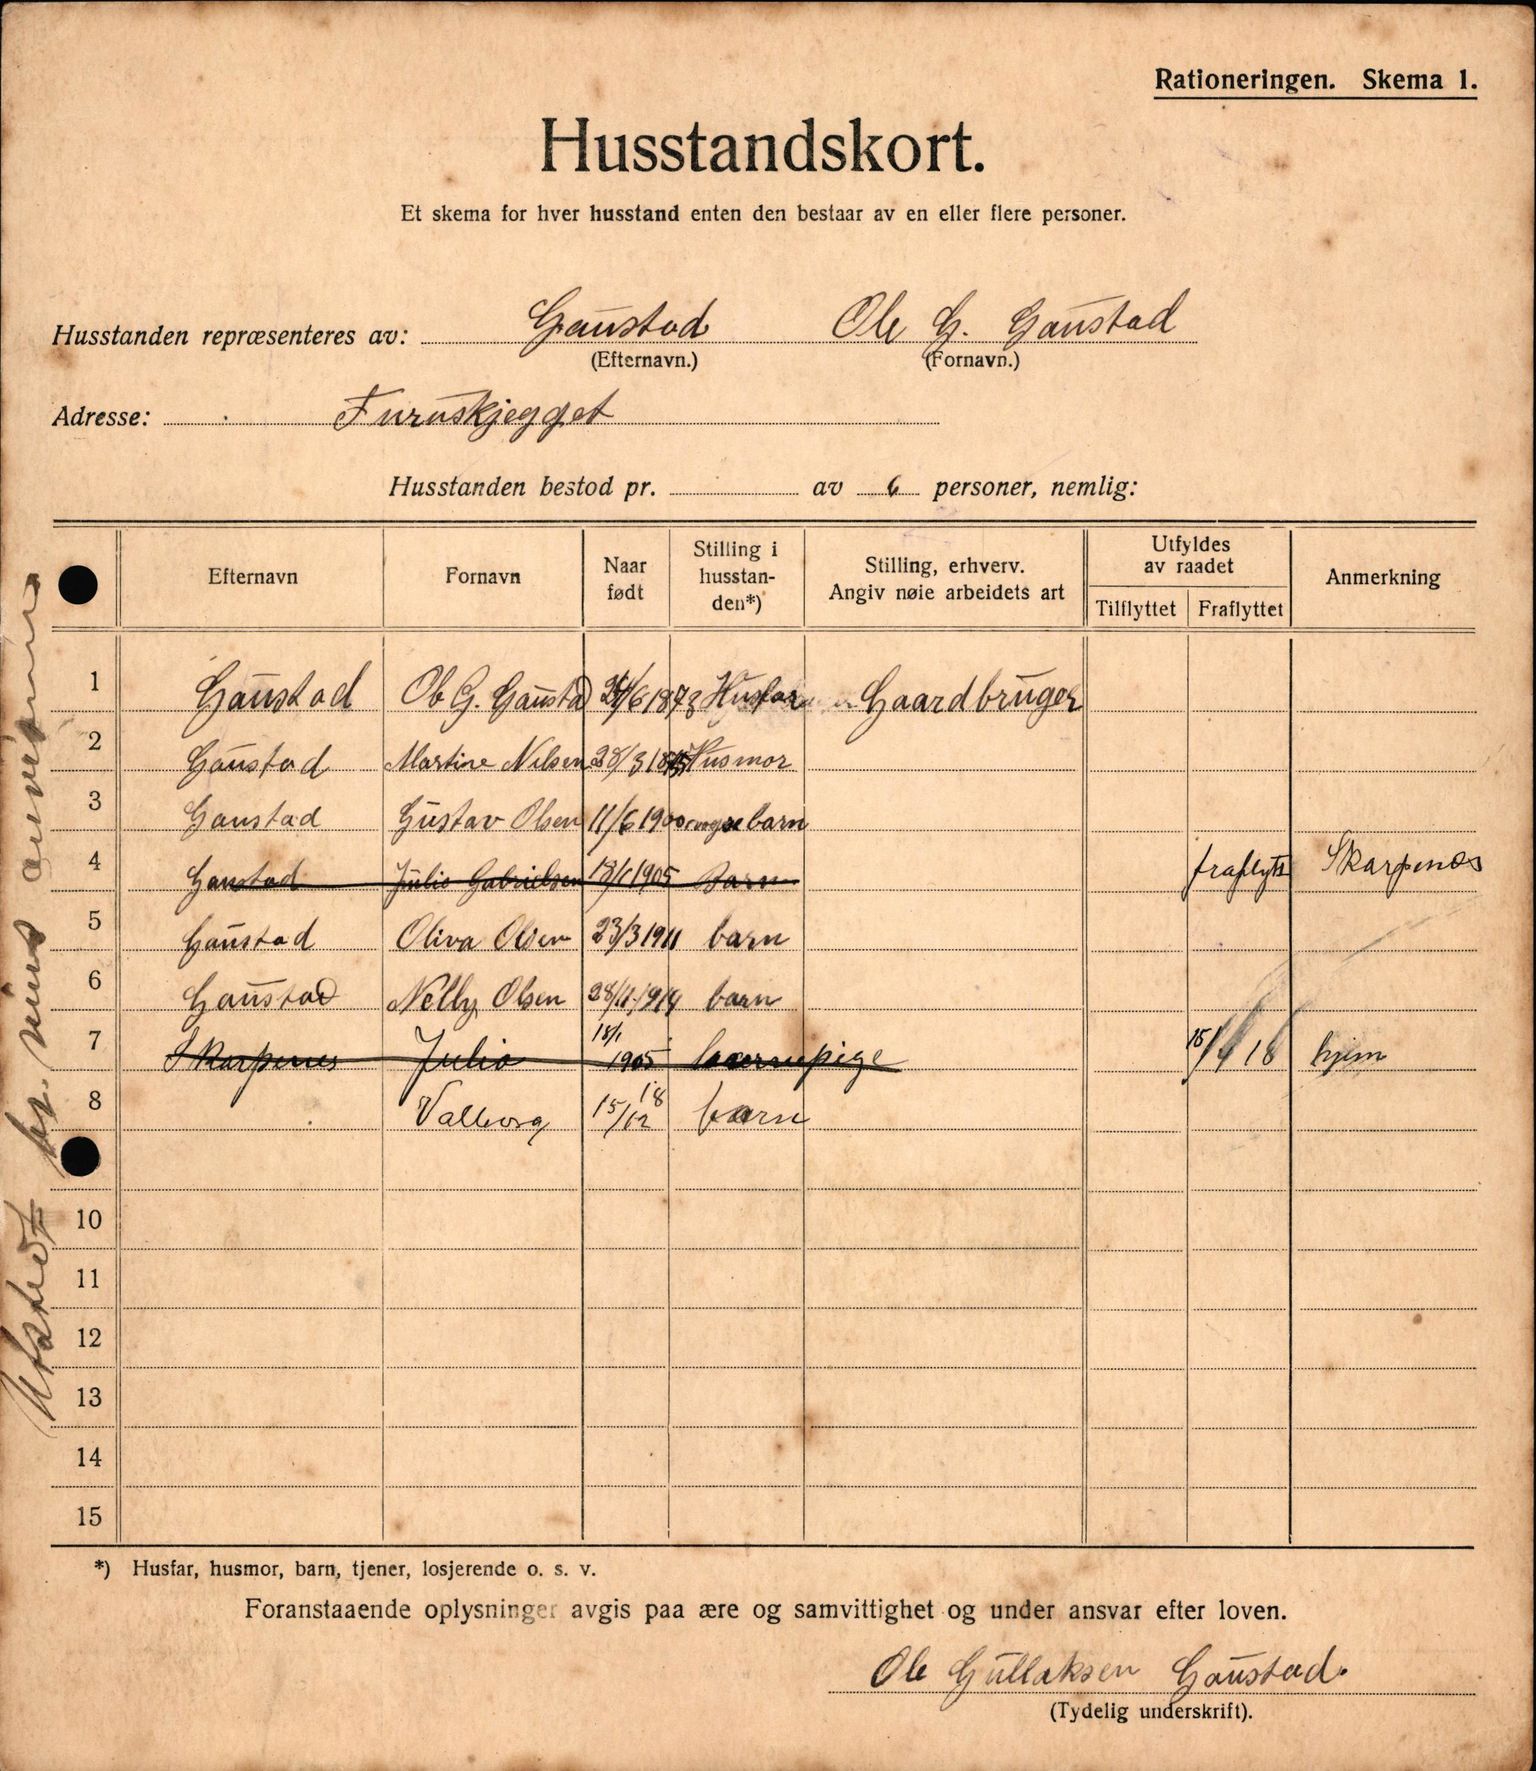 Rationeringen. Skema 1.
Husstandskort.
Et skema for hver husstand enten den bestaar av en eller flere personer.
Husstanden repræsenteres av: Gaustad Ole G. Gaustad
(Efternavn.) (Fornavn.)
Adresse: Furuskjegget
Husstanden bestod pr. av 6 personer, nemlig:
Efternavn Fornavn Naar født Stilling i husstan-den*) Stilling, erhverv. Angiv nøie arbeidets art Utfyldes av raadet Tilflyttet Fraflyttet Anmerkning
1 Gaustad Ole G. Gaustad /6 1873 Husfar Gaardbruger
2 Gaustad Martine Nilsen 28/3 Husmor
3 Gaustad Gustav Olsen 11/6 1900 barn
4 Gaustad Julie Gabrielsen 18/1 1905 Barn fraflytt Skarpenes
5 Gaustad Oliva Olsen 23/3 1911 barn
6 Gaustad Nelly Olsen 28/11 1914 barn
7 Skarpenes Julie 18/1 1905 barnepige 15/4 18 hjem
8 Valborg 15/12 18 barn
10
11
12
13
14
15
*) Husfar, husmor, barn, tjener, losjerende o. s. v.
Foranstaaende oplysninger avgis paa ære og samvittighet og under ansvar efter loven.
Ole Gullaksen Gaustad.
(Tydelig underskrift).
Utstedt